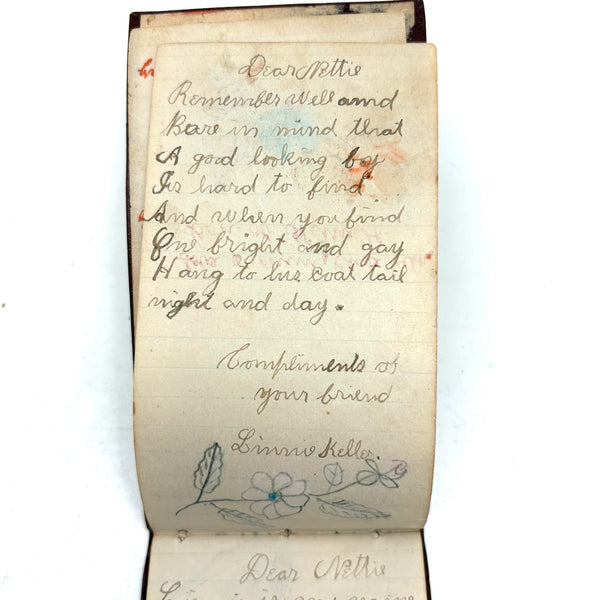 Dear Nettie
Remember well and
Bare in mind that
A good looking boy
Is hard to find
And when you find
One bright and gay
Hang to his coat tail
night and day.
Compliments of
your friend
Linnie Keller.
Dear Nettie